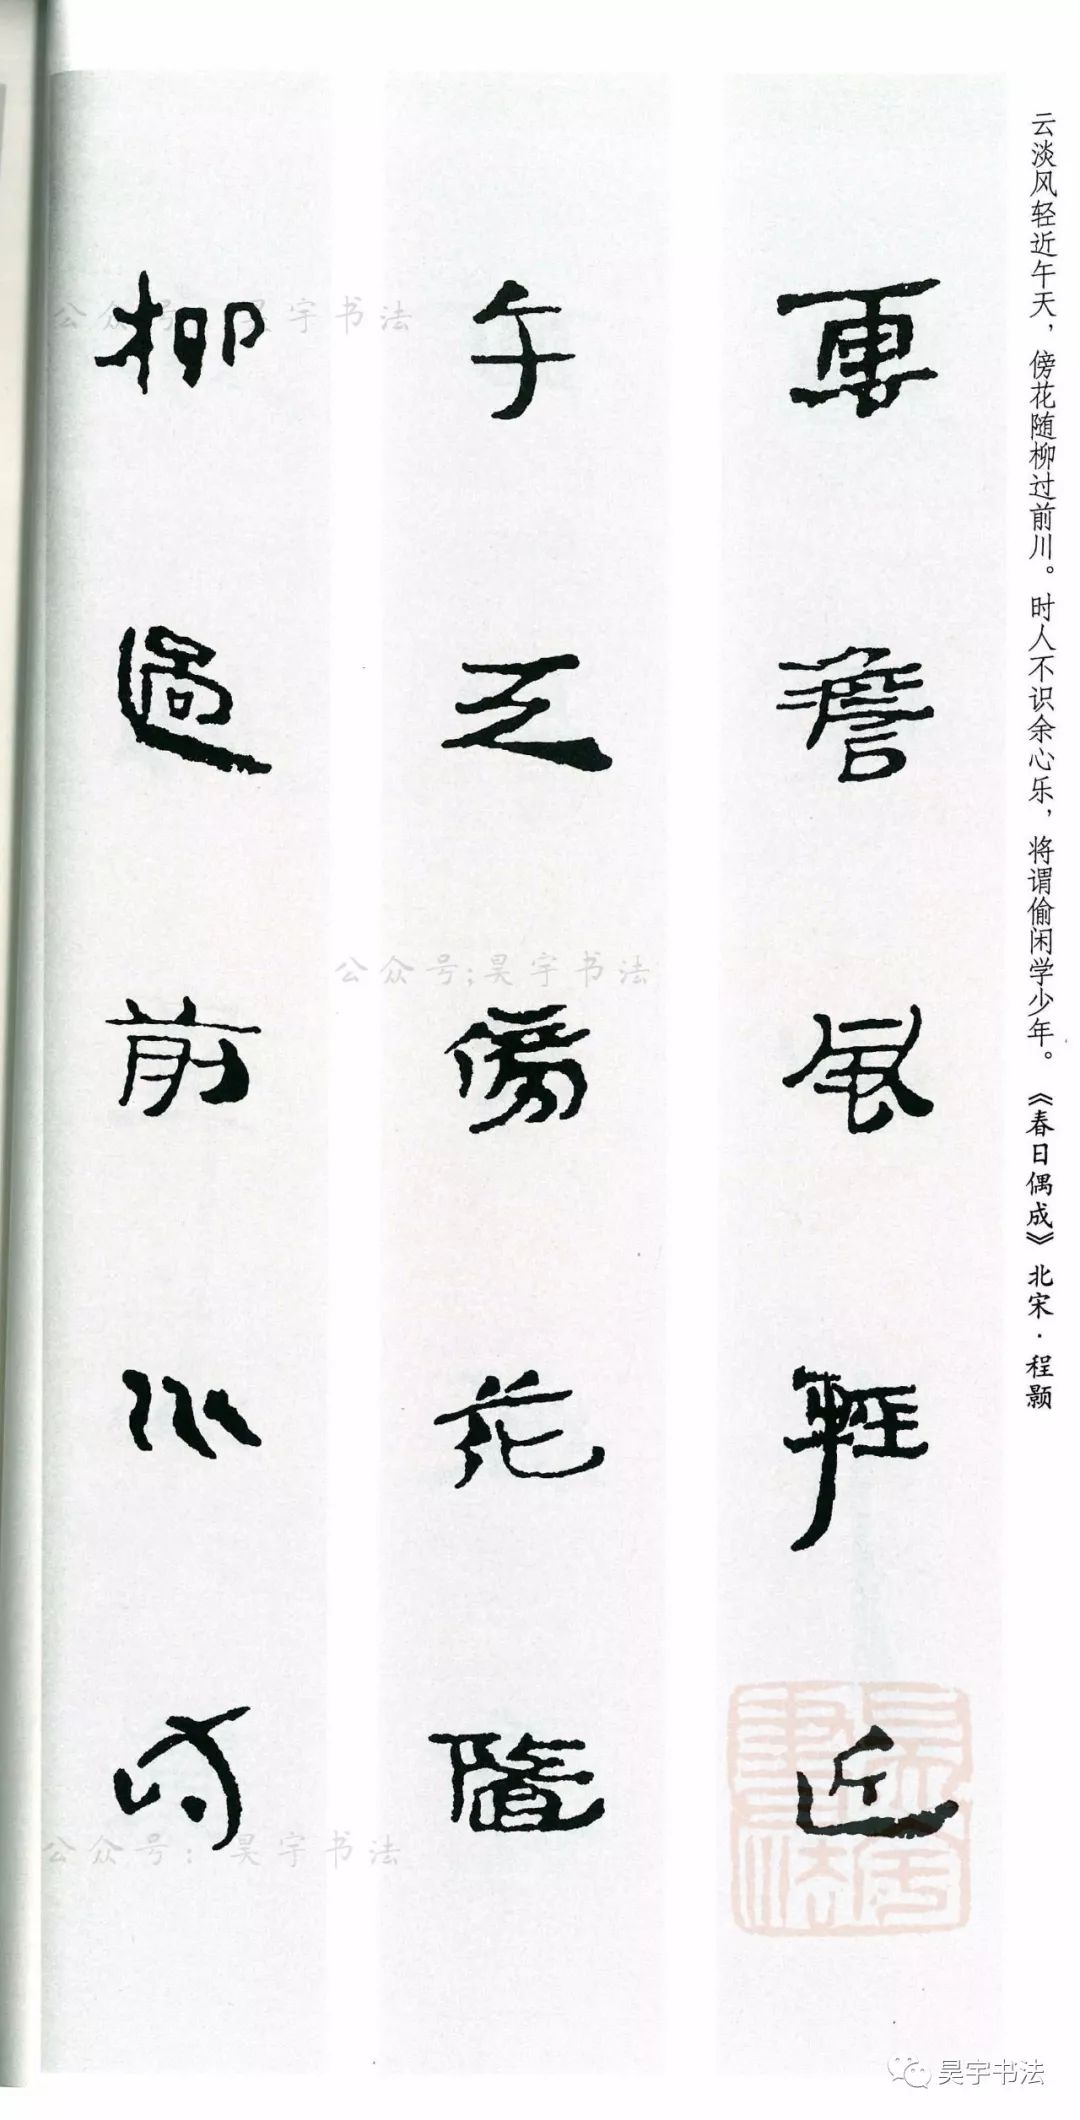 云淡风轻近午天，傍花随柳过前川。时人不识余心乐，将谓偷闲学少年。《春日偶成》北宋·程颢
雲澹風輕近
午天傍花隨
柳過前川時
公众号:昊宇书法
公众号:昊宇书法
公众号:昊宇书法
昊宇書法
昊宇书法